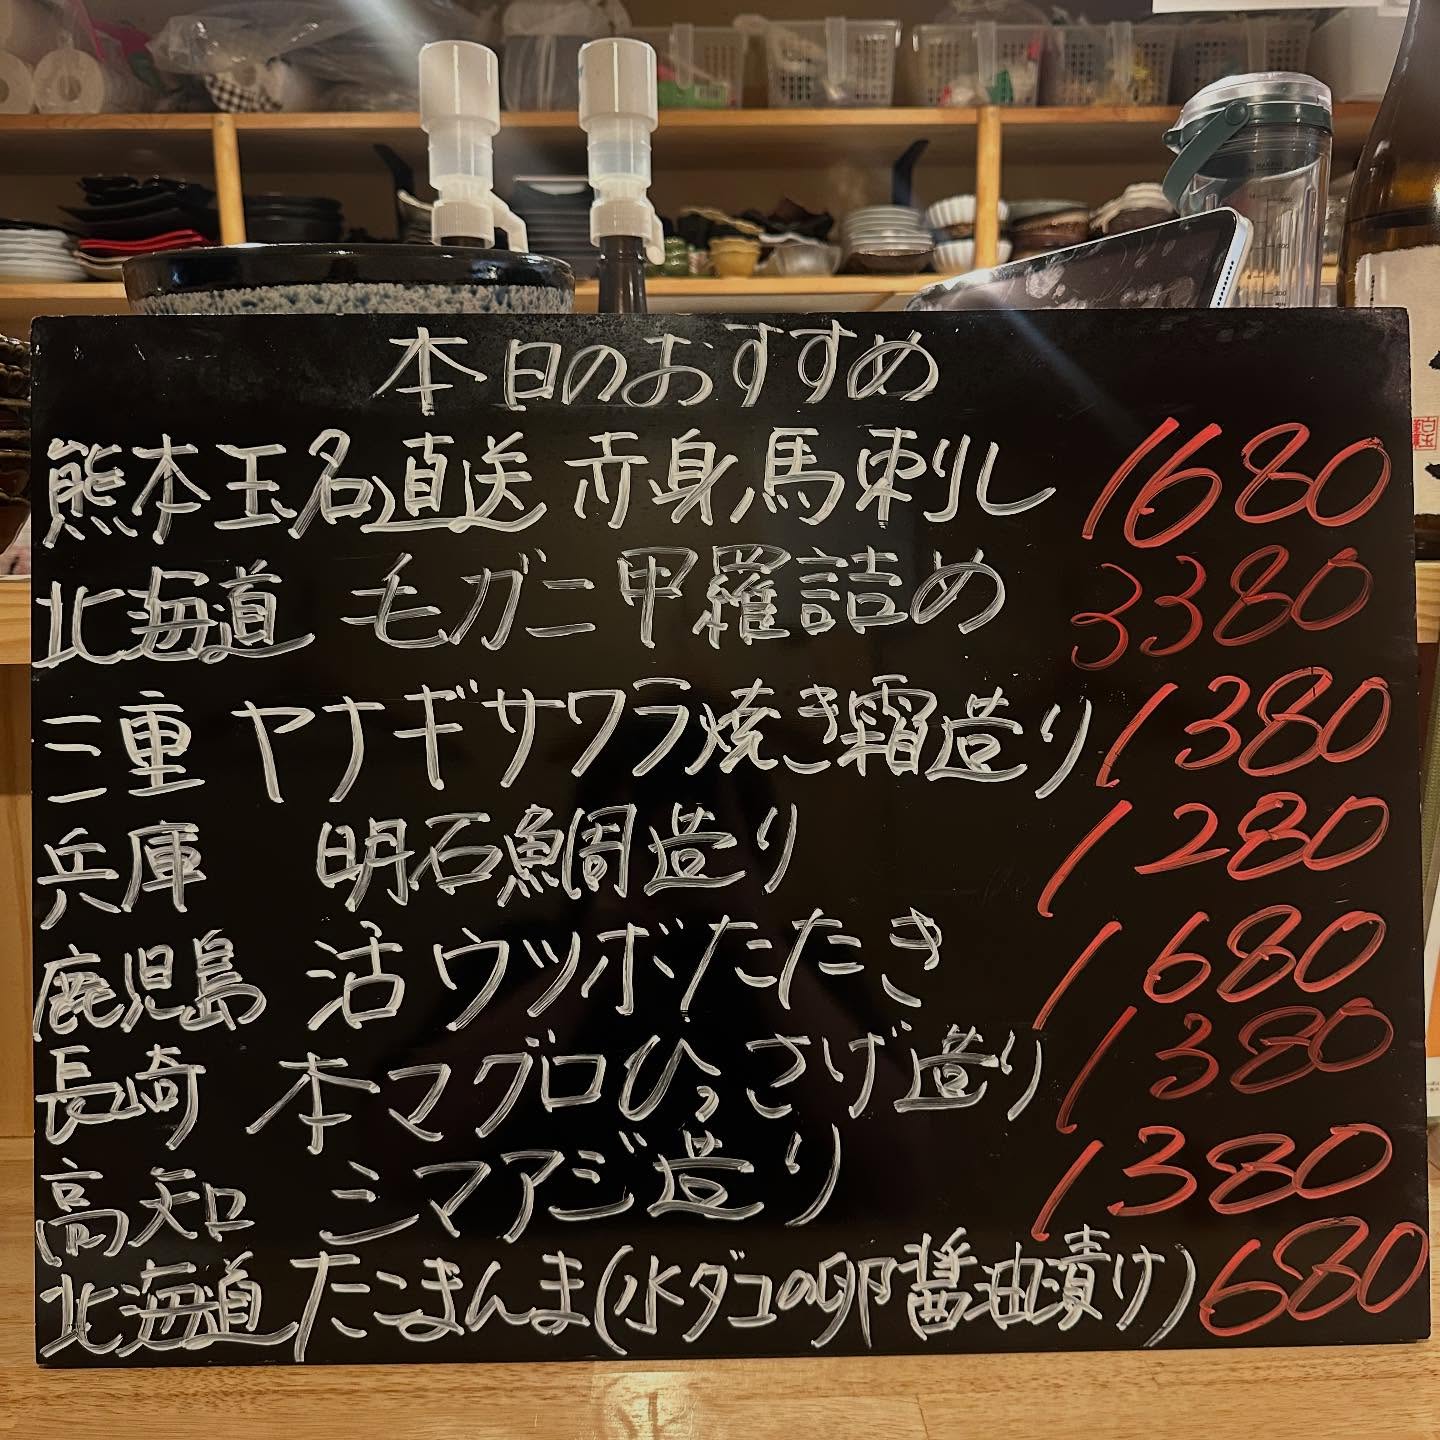 本日のおすすめ
熊本玉名直送 赤身馬刺し 1680
北海道 毛ガニ甲羅詰め 3380
三重 ヤナギサワラ焼き霜造り 1380
兵庫 明石鯛造り 1280
鹿児島 活ウツボたたき 1680
長崎 本マグロひっさげ造り 1380
高知 シマアジ造り 1380
北海道 たこまんま(水ダコの卵醤油漬け) 680